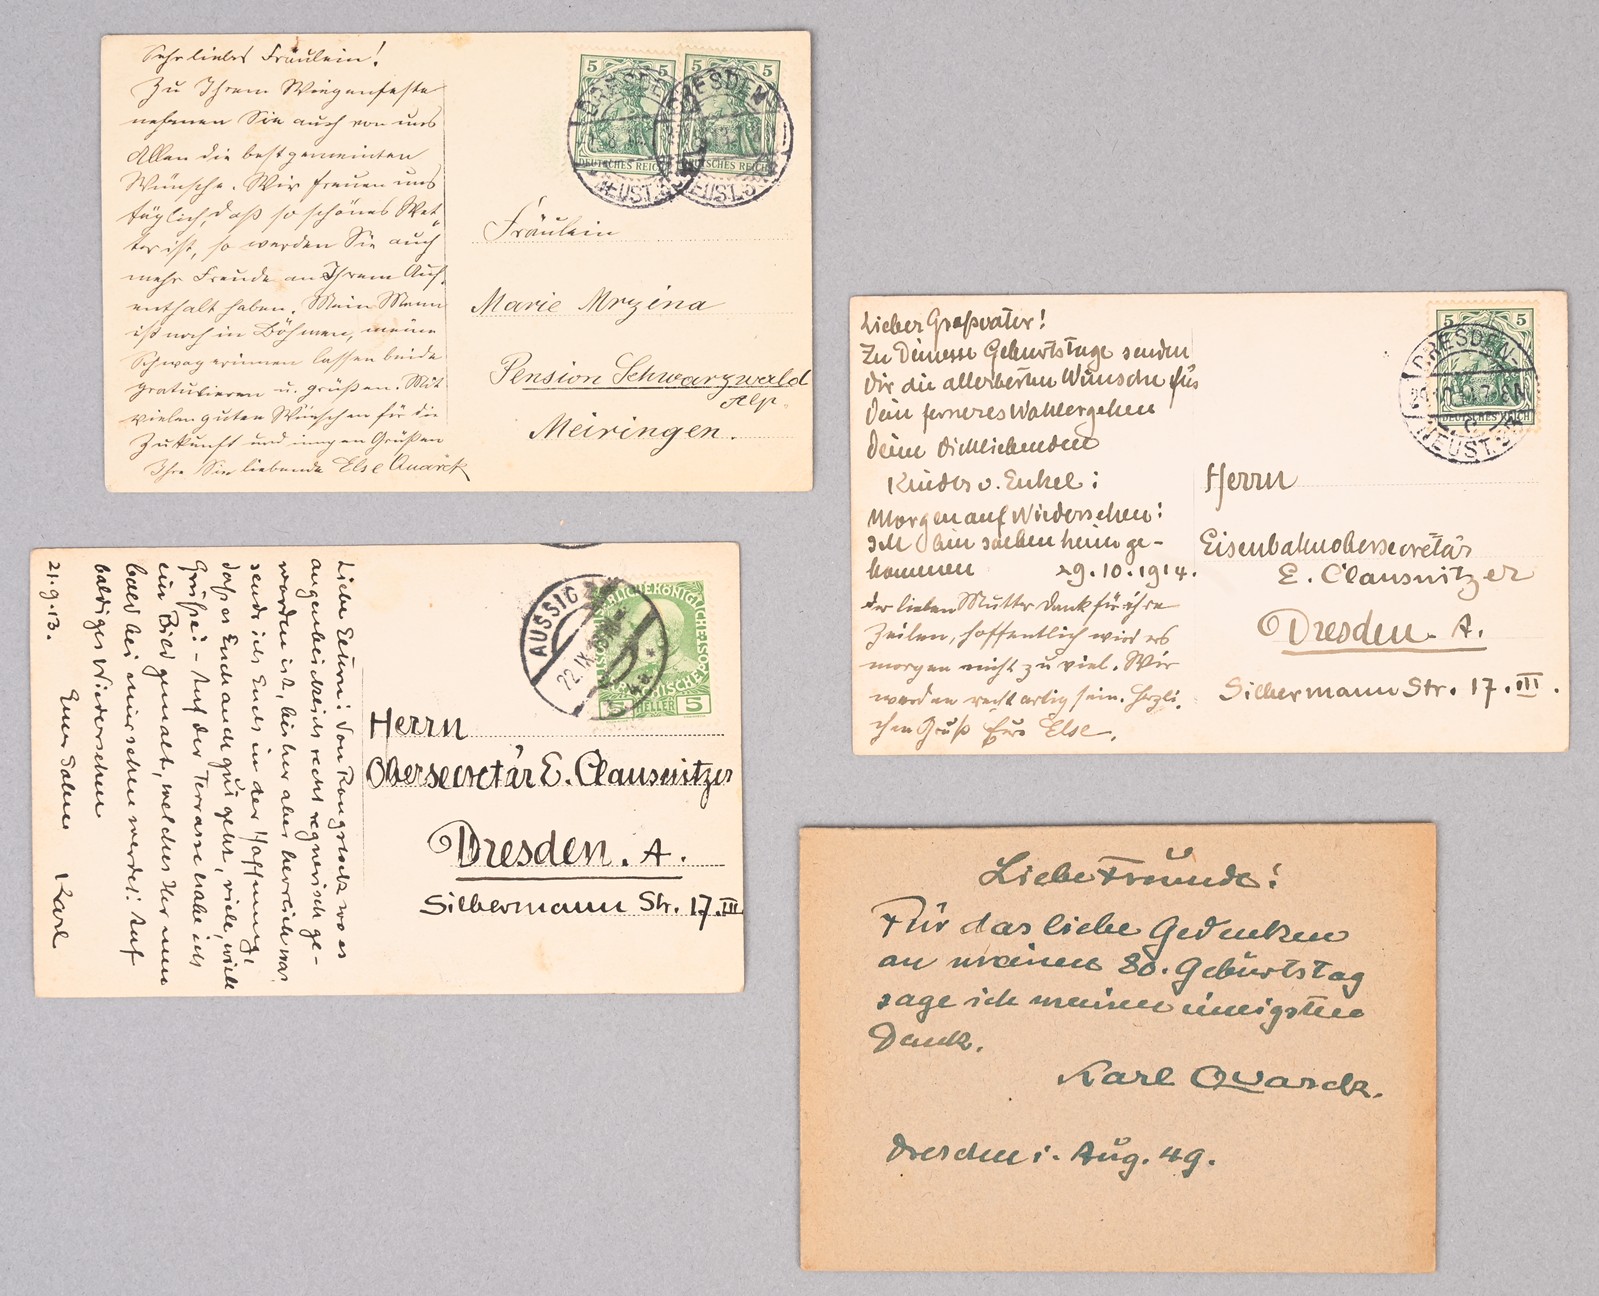 Sehr liebes Fräulein!
Zu Ihrem Wiegenfeste
nehmen Sie auch von uns
Allen die bestgemeinten
Wünsche. Wir freuen uns
täglich, daß so schönes Wet-
ter ist, so werden Sie auch
mehr Freude an Ihrem Auf-
enthalt haben. Mein Mann
ist noch in Böhmen, meine
Schwägerinnen lassen beide
gratulieren u. grüßen. Mit
vielen guten Wünschen für die
Zukunft und innigen Grüßen
Ihre Sie liebende Else Quarck
5 5
5 5
DEUTSCHES REICH
DEUTSCHES REICH
DRESDEN
NEUST.
DRESDEN
NEUST.
Fräulein
Marie Mrzina
Pension Schwarzwald
Alp.
Meiringen.
Lieber Großvater!
Zu Deinem Geburtstage senden
Dir die allerbesten Wünsche für
Dein ferneres Wohlergehen
Deine Dichliebenden
Kinder u. Enkel:
Morgen auf Wiedersehen!
Ich bin soeben heimge-
kommen 29.10.1914.
Der lieben Mutter Dank für ihre
Zeilen, hoffentlich wird es
morgen nicht zu viel. Wir
werden recht artig sein. Herzli-
chen Gruß Eure Else.
5 5
DEUTSCHES REICH
DRESDEN-
NEUST.
Herrn
Eisenbahnobersecretär
E. Clausnitzer
Dresden. A.
Silbermann Str. 17. III.
Liebe Eltern! Von Kongress wo es
augenblicklich recht regnerisch ge-
worden ist, bisher aber herrlich war
sende ich Euch in der Hoffnung,
daß es Euch auch gut geht, viele, viele
Grüße! - Auf der Terrasse habe ich
ein Bild gemalt, welches Ihr nun
bald bei mir sehen werdet! Auf
baldiges Wiedersehen
Euer Sohn Karl
21.9.13.
AUSSIG 2
22.IX.13
5 HELLER 5
Herrn
Obersecretär E. Clausnitzer
Dresden. A.
Silbermann Str. 17. III
Liebe Freunde!
Für das liebe Gedenken
an meinen 80. Geburtstag
sage ich meinen innigsten
Dank.
Karl Quarck.
Dresden i. Aug. 49.